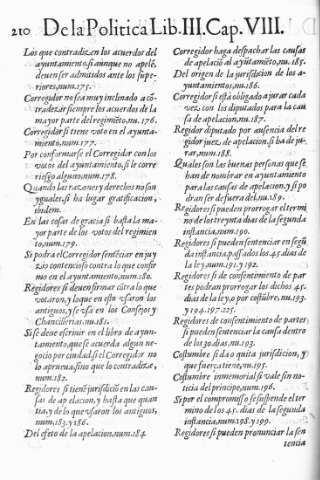 210 De la Politica Lib. III. Cap. VIII.
Los que contradizen los acuerdos del
ayuntamiento, si aunque no apelẽ,
deuen ser admitidos ante los supe-
riores, num. 175.
Corregidor no sea muy inclinado a cõ-
tradezir siempre los acuerdos de la
mayor parte del regimiẽto, nu. 176.
Corregidor si tiene voto en el ayunta-
miento, num. 177.
Por conformarse el Corregidor con los
votos del ayuntamiento, si le corre
riesgo alguno, num. 178.
Quando las razones y derechos no son
yguales, si ha lugar gratificacion,
ibidem.
En las cosas de gracia si basta la ma-
yor parte de los votos del regimien
to, num. 179.
Si podra el Corregidor sentẽciar en juy
zio contencioso contra lo que confir
mo en el ayuntamiento, num. 180.
Regidores si deuen firmar cõtra lo que
votaron, y lo que en esto vsaron los
antiguos, y se vsa en los Consejos y
Chancillerias, nu. 181.
Si se deue escriuir en el libro de ayun-
tamiento, que se acuerda algun ne-
gocio por ciudad, si el Corregidor no
lo aprueua, sino que lo contradize,
num. 182.
Regidores si tienẽ jurisdiciõ en las cau-
sas de apelacion, y hasta que quan
tia, y de lo que vsaron los antiguos,
num. 183. y 186.
Del efeto de la apelacion, num. 184.
Corregidor haga despachar las causas
de apelaciõ al ayũtamiẽto, nu. 185.
Del origen de la jurisdicion de los a-
yuntamientos, nu. 186.
Corregidor si està obligado a jurar cada
vez, con los diputados para la cau
sa de apelacion, nu. 187.
Regidor diputado por ausencia del re
gidor juez, de apelacion, si ha de ju-
rar, num. 188.
Quales son las buenas personas que se
han de nombrar en ayuntamiento
para las causas de apelacion, y si po
dran ser de fuera del, nu. 189.
Regidores si pueden prorrogar el termi
no de los treynta dias de la segunda
instancia, num. 190.
Regidores si pueden sentenciar en segũ
da instancia, passados los 45. dias de
la ley, num. 191. y 192.
Regidores si de consentimiento de par
tes podran prorrogar los dichos 45.
dias de la ley, o por costũbre, nu. 193.
y 194. 197. 225.
Regidores de consentimiento de partes,
si pueden sentenciar la causa dentro
de los 30. dias, nu. 193.
Costumbre si da o quita jurisdicion, y
que fuerça tiene, nu. 195.
Costumbre immemorial si vale sin no-
ticia del principe, num. 196.
Si por el compromisso se suspende el ter
mino de los 45. dias de la segunda
instancia, num. 198. y 199.
Regidores si pueden pronunciar la sen
tencia